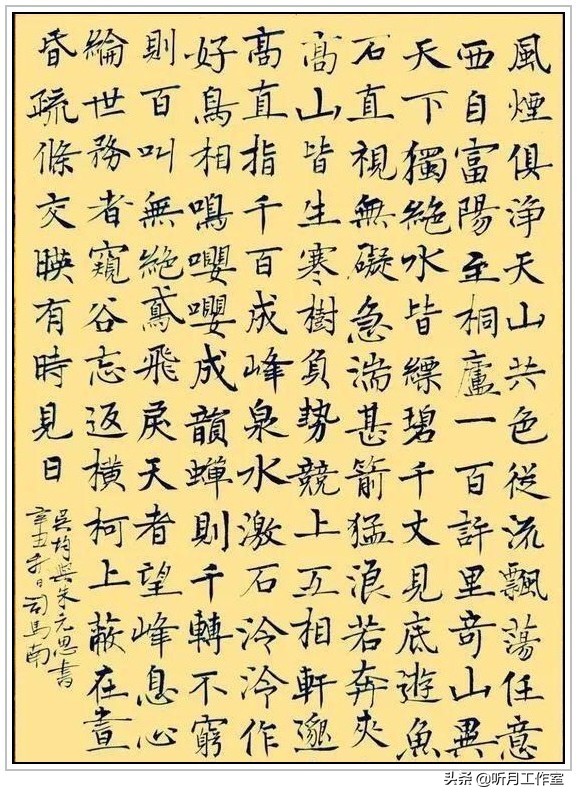 風煙俱浄天山共色從流飄蕩任意
西自富陽至桐廬一百許里奇山異
天下獨絶水皆縹碧千丈見底遊魚
石直視無礙急湍甚箭猛浪若奔夾
高山皆生寒樹負勢競上互相軒邈
高直指千百成峰泉水激石泠泠作
好鳥相鳴嚶嚶成韻蟬則千轉不窮
則百叫無絶鳶飛戾天者望峰息心
綸世務者窺谷忘返橫柯上蔽在晝
昏疏條交暎有時見日
吳均與朱元思書
辛丑日司馬南
头条 @听月工作室